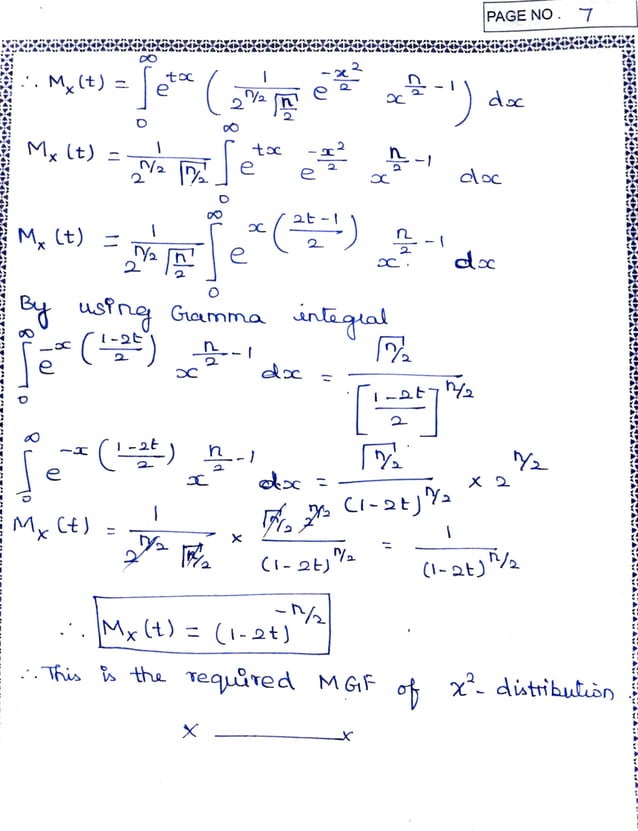 PAGE NO. 7
∴ Mₓ(t) = ∫₀^∞ e^{tx} ( 1/(2^{n/2} Γ(n/2)) e^{-x²/2} x^{n/2 - 1} ) dx
Mₓ(t) = 1/(2^{n/2} Γ(n/2)) ∫₀^∞ e^{tx} e^{-x²/2} x^{n/2 - 1} dx
Mₓ(t) = 1/(2^{n/2} Γ(n/2)) ∫₀^∞ e^{x((2t-1)/2)} x^{n/2 - 1} dx
By using Gamma integral
∫₀^∞ e^{-x((1-2t)/2)} x^{n/2 - 1} dx = Γ(n/2) / [(1-2t)/2]^{n/2}
∫₀^∞ e^{-x((1-2t)/2)} x^{n/2 - 1} dx = Γ(n/2) / (1-2t)^{n/2} × 2^{n/2}
Mₓ(t) = 1/(2^{n/2} Γ(n/2)) × Γ(n/2) 2^{n/2} / (1-2t)^{n/2} = 1/(1-2t)^{n/2}
∴ Mₓ(t) = (1-2t)^{-n/2}
∴ This is the required MGF of x²- distribution
x ———— x